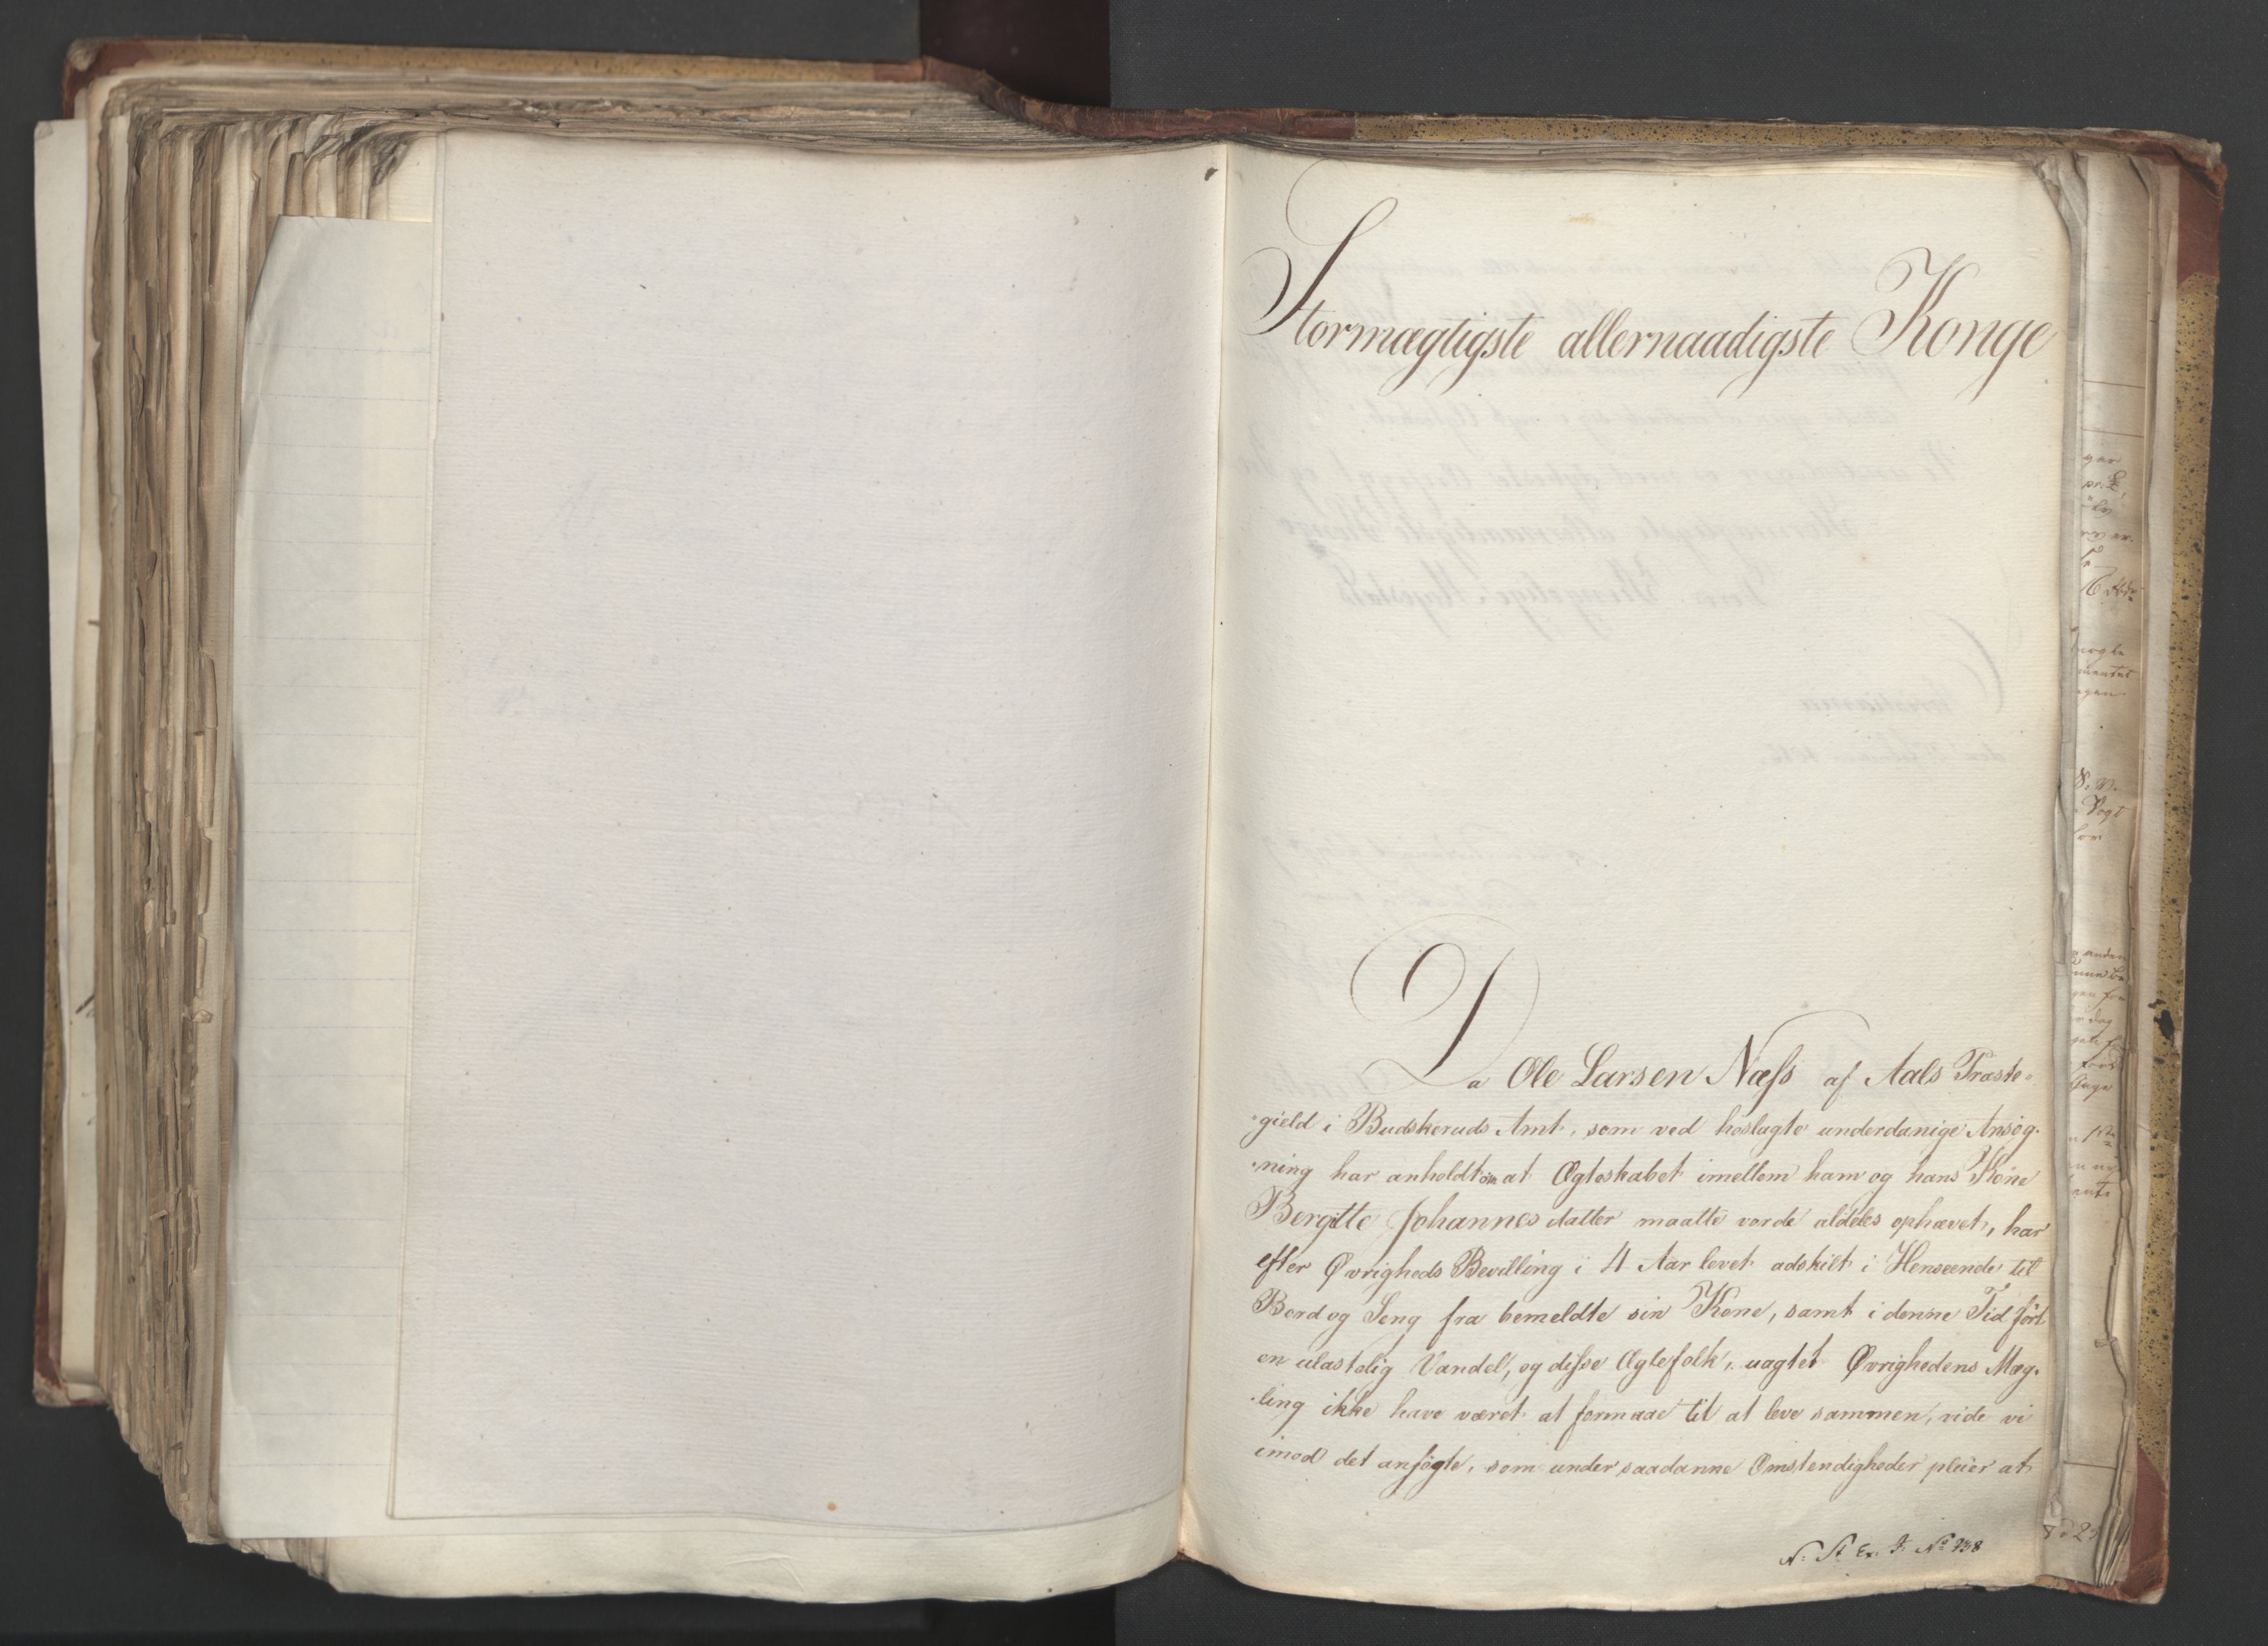 Stormægtigste allernaadigste Konge
Da Ole Larsen Næss af Aals Præste-
-gield i Budskeruds Amt, som ved hoslagte underdanige Ansøg-
-ning har anholdt om at Ægteskabet imellem ham og hans Kone
Bergitte Johannesdatter maatte vorde aldeles ophævet, har
efter Øvrigheds Bevilling i 4 Aar levet adskilt i Henseende til
Bord og Seng fra bemeldte sin Kone, samt i denne Tid ført
en ulastelig Vandel, og disse Ægtefolk, uagtet Øvrighedens Mæg-
-ling ikke have været at formaae til at leve sammen, vide vi
imod det ansøgte, som under saadanne Omstendigheder pleier at
N: St Ex. J: No 238